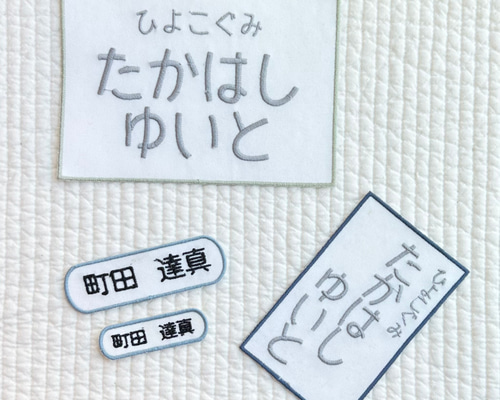 ひよこぐみ
たかはし
ゆいと
町田 達真
町田 達真
ひよこぐみ
たかはし
ゆいと